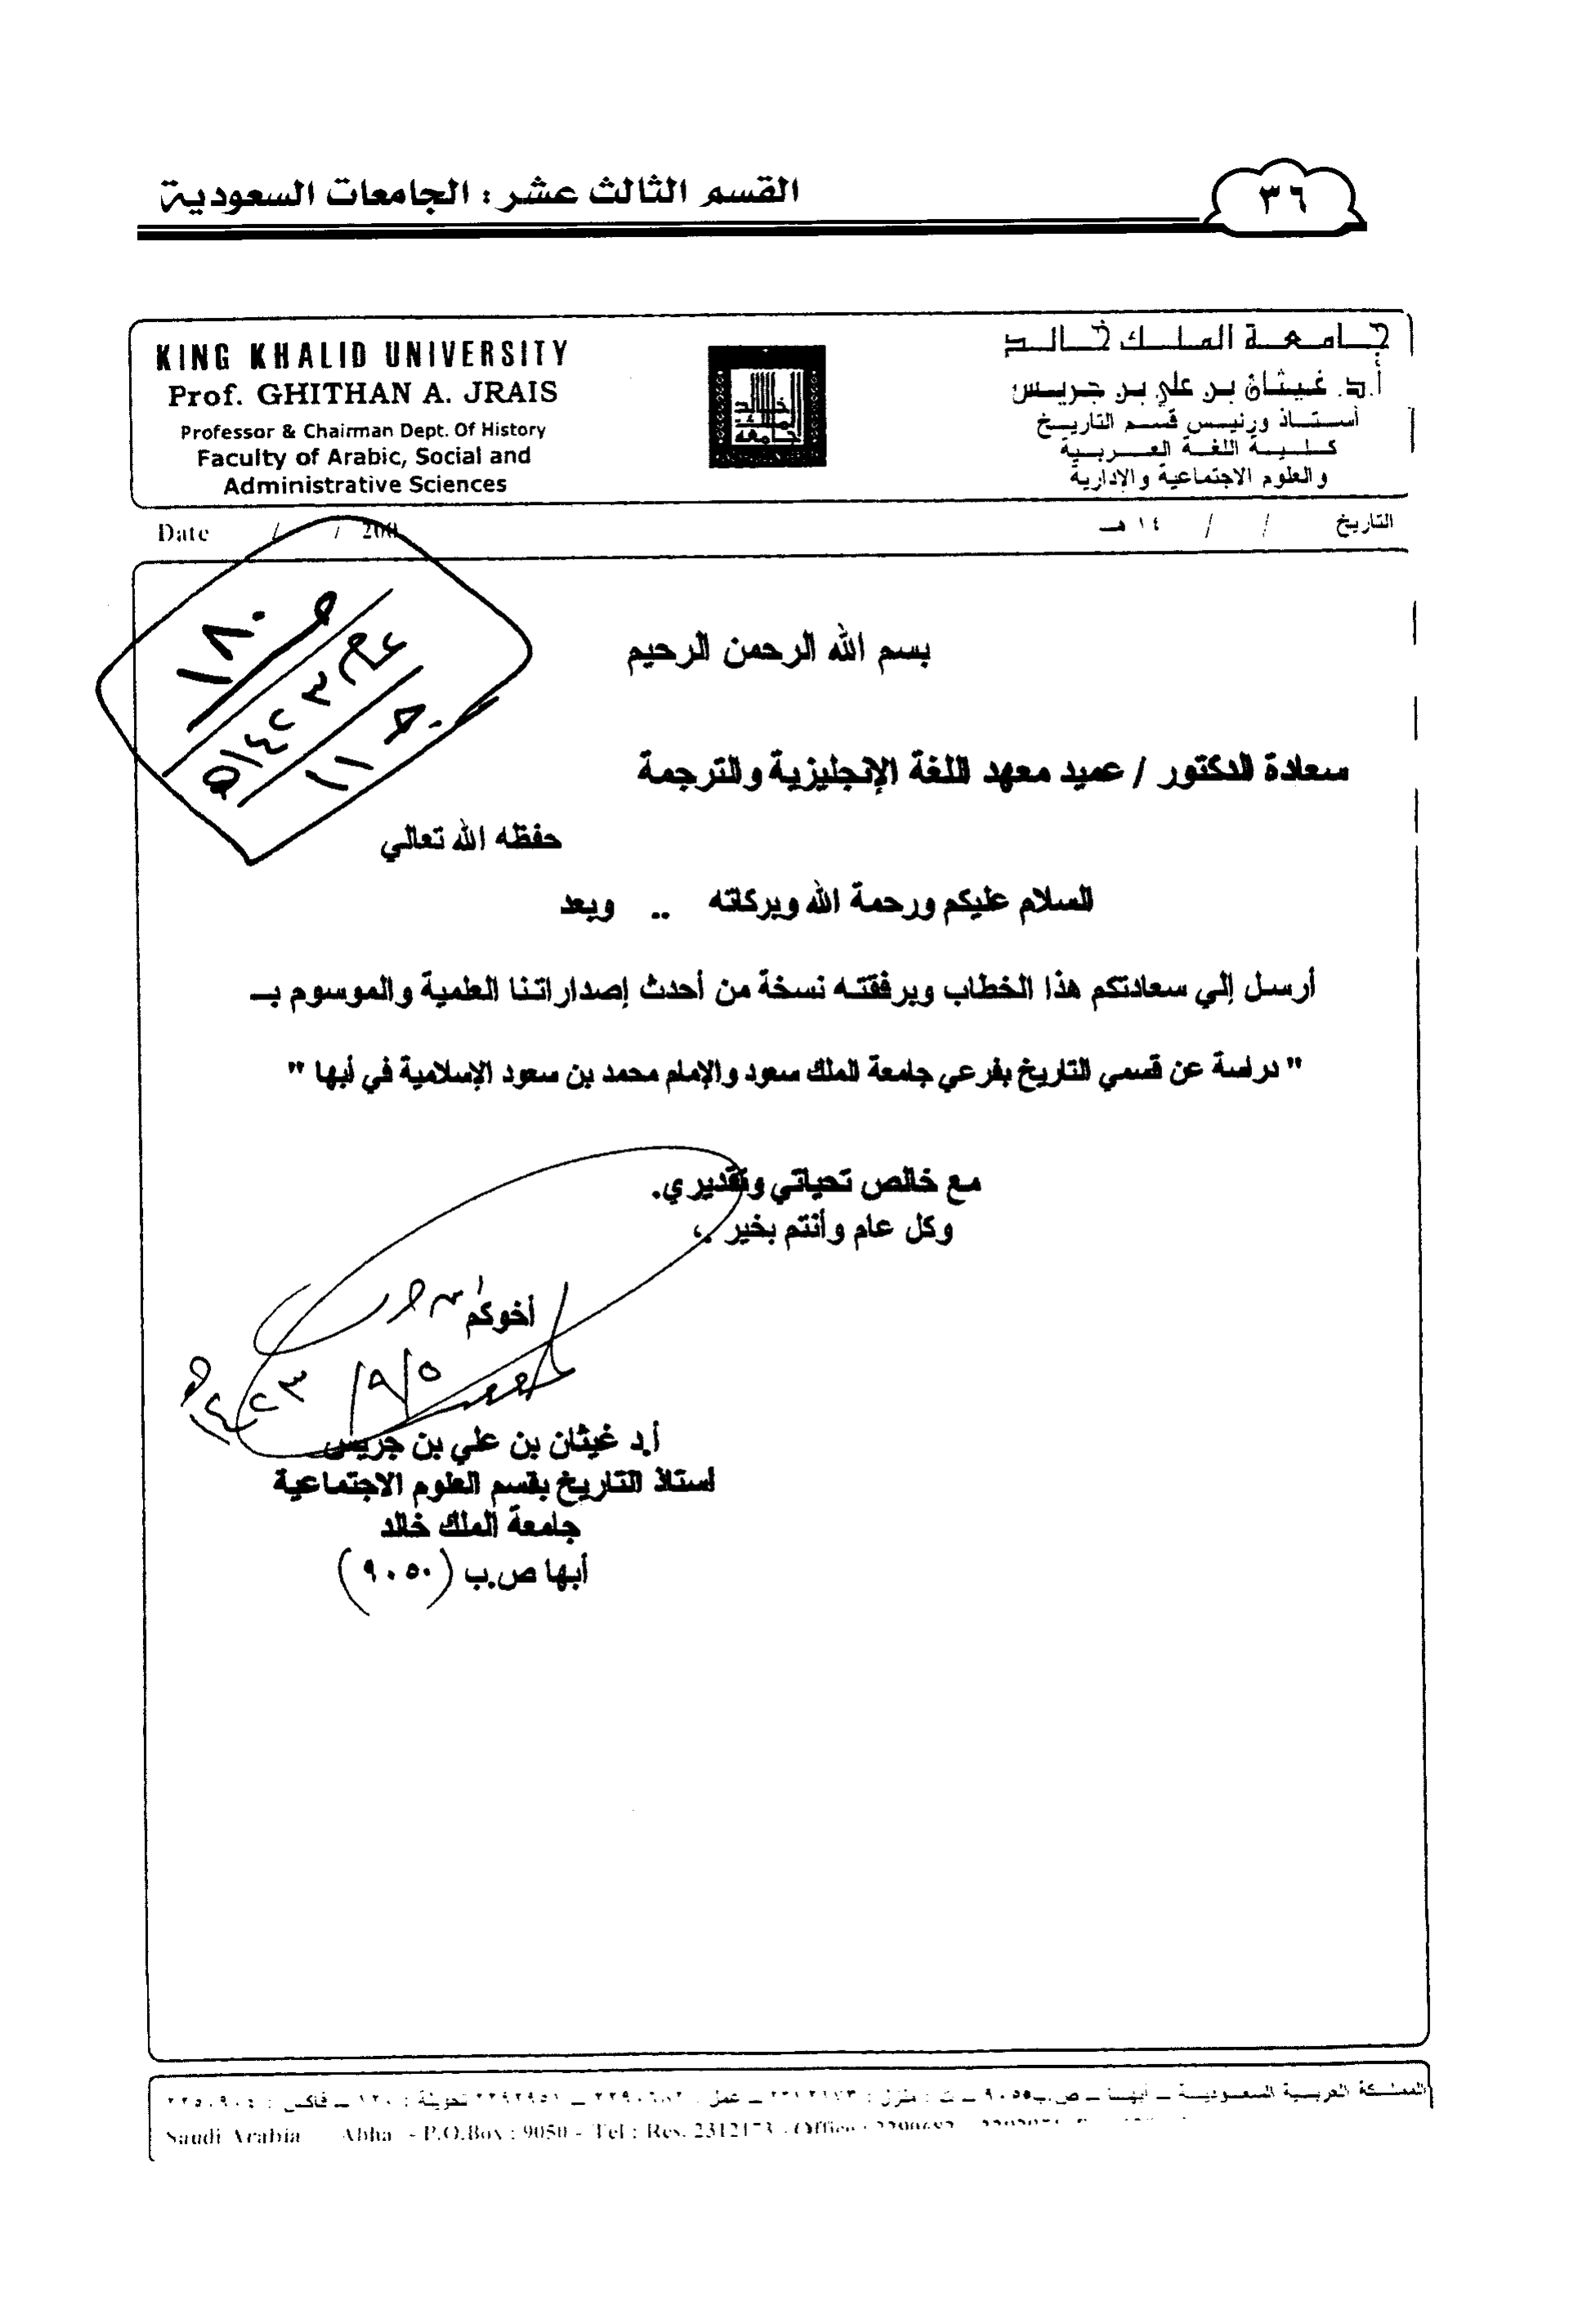 القسم الثالث عشر : الجامعات السعودية
٣٦
KING KHALID UNIVERSITY
Prof. GHITHAN A. JRAIS
Professor & Chairman Dept. Of History
Faculty of Arabic, Social and
Administrative Sciences
جامعة الملك خالد
أ.د. غيثان بن علي بن جريس
أستاذ ورئيس قسم التاريخ
كلية اللغة العربية
والعلوم الاجتماعية والإدارية
جامعة الملك خالد
Date / / 200
التاريخ / / ١٤ هـ
ص ١٨٠
عام ١٤٢٣ هـ
جـ ١١
بسم الله الرحمن الرحيم
سعادة الدكتور / عميد معهد اللغة الإنجليزية والترجمة
حفظه الله تعالي
السلام عليكم ورحمة الله وبركاته .. وبعد
أرسل إلي سعادتكم هذا الخطاب وبرفقته نسخة من أحدث إصداراتنا العلمية والموسوم بـ
" دراسة عن قسمي التاريخ بفرعي جامعة الملك سعود والإمام محمد بن سعود الإسلامية في أبها "
مع خالص تحياتي وتقديري.
وكل عام وأنتم بخير ،،
أخوكم
٥/٩/١٤٢٣هـ
أ.د غيثان بن علي بن جريس
استاذ التاريخ بقسم العلوم الاجتماعية
جامعة الملك خالد
أبها ص.ب (٩٠٥٠)
المملكة العربية السعودية – أبها – ص.ب – ت : منزل : – عمل : – ٢٢٩٢٩٥١ تحويلة : ١٢٠ – فاكس :
Saudi Arabia Abha - P.O.Box : 9050 - Tel : Res. 2312173 - Office :